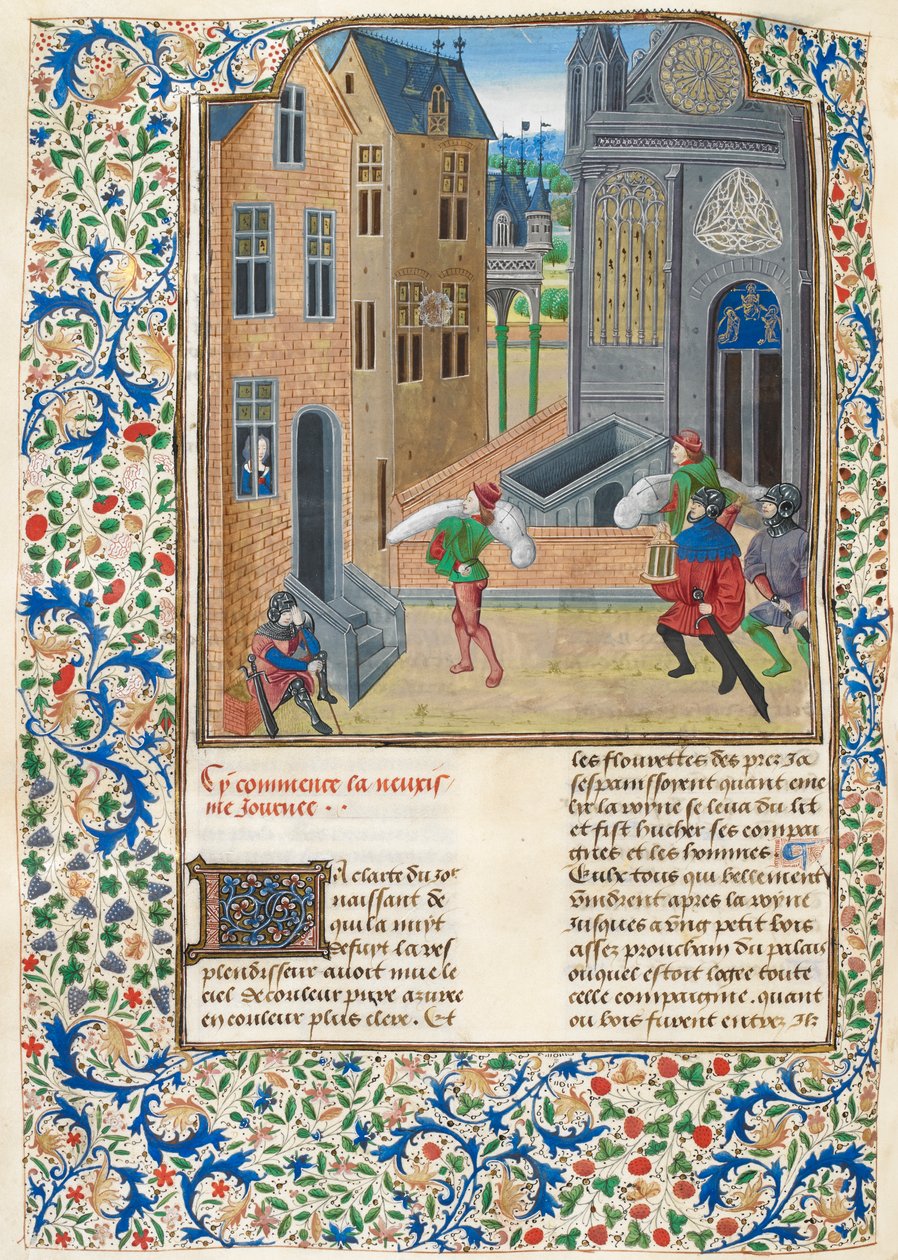 Cy commence la neuxis
me Journee . .
La clarte du Jor
naissant de
qui la nuyt
defuyt la res
plendisseur avoit mue le
ciel de couleur pure azuree
en couleur plus clere. Et
les flourettes des prez Ja
sespanissoyent quant eme
lye la royne se leva du lit
et fist hucher ses compai
gnes et les hommes
Eulx tous qui bellement
vindrent apres la royne
Jusques a ung petit bois
assez prouchain du palais
ouquel estoit logee toute
celle compaignie. quant
ou bois furent entrez Ilz